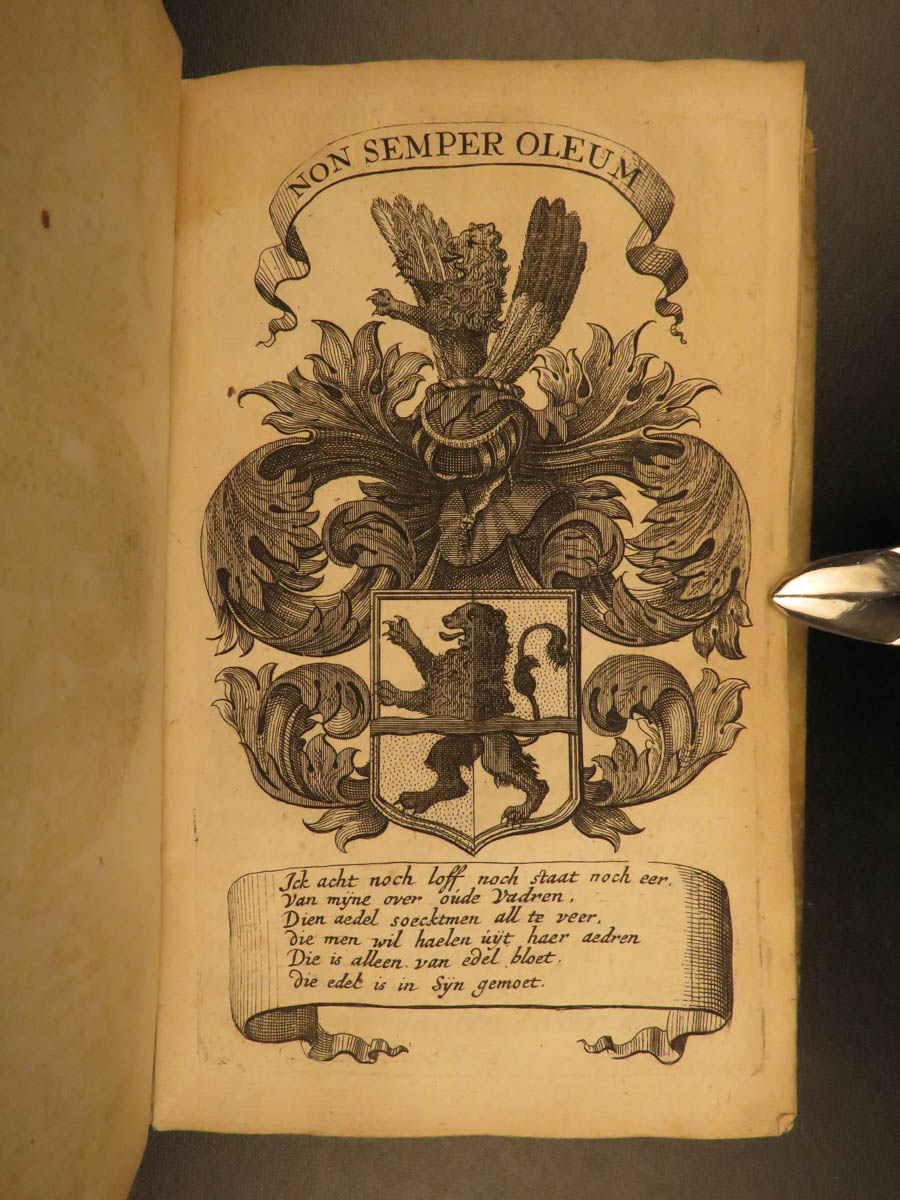 NON SEMPER OLEUM
Ick acht noch loff noch staat noch eer,
Van mijne over oude Vadren,
Dien aedel soecktmen all te veer,
die men wil haelen úÿt haer aedren
Die is alleen van edel bloet,
die edel is in Sÿn gemoet.